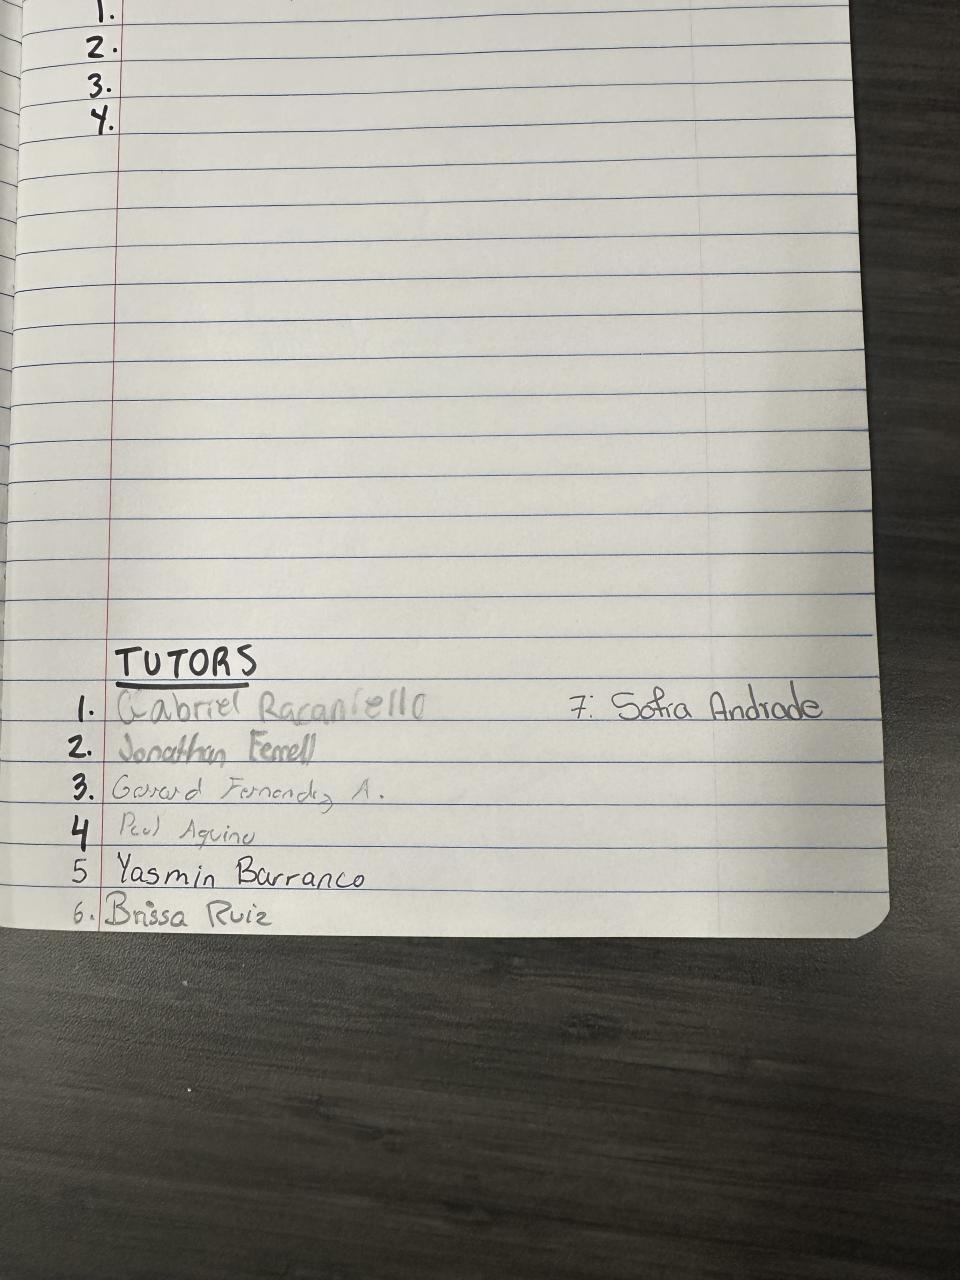 1.
2.
3.
4.
TUTORS
1. Gabriel Racaniello
2. Jonathan Ferrell
3. Gerard Fernandez A.
4 Paul Aquino
5 Yasmin Barranco
6. Brissa Ruiz
7. Sofia Andrade